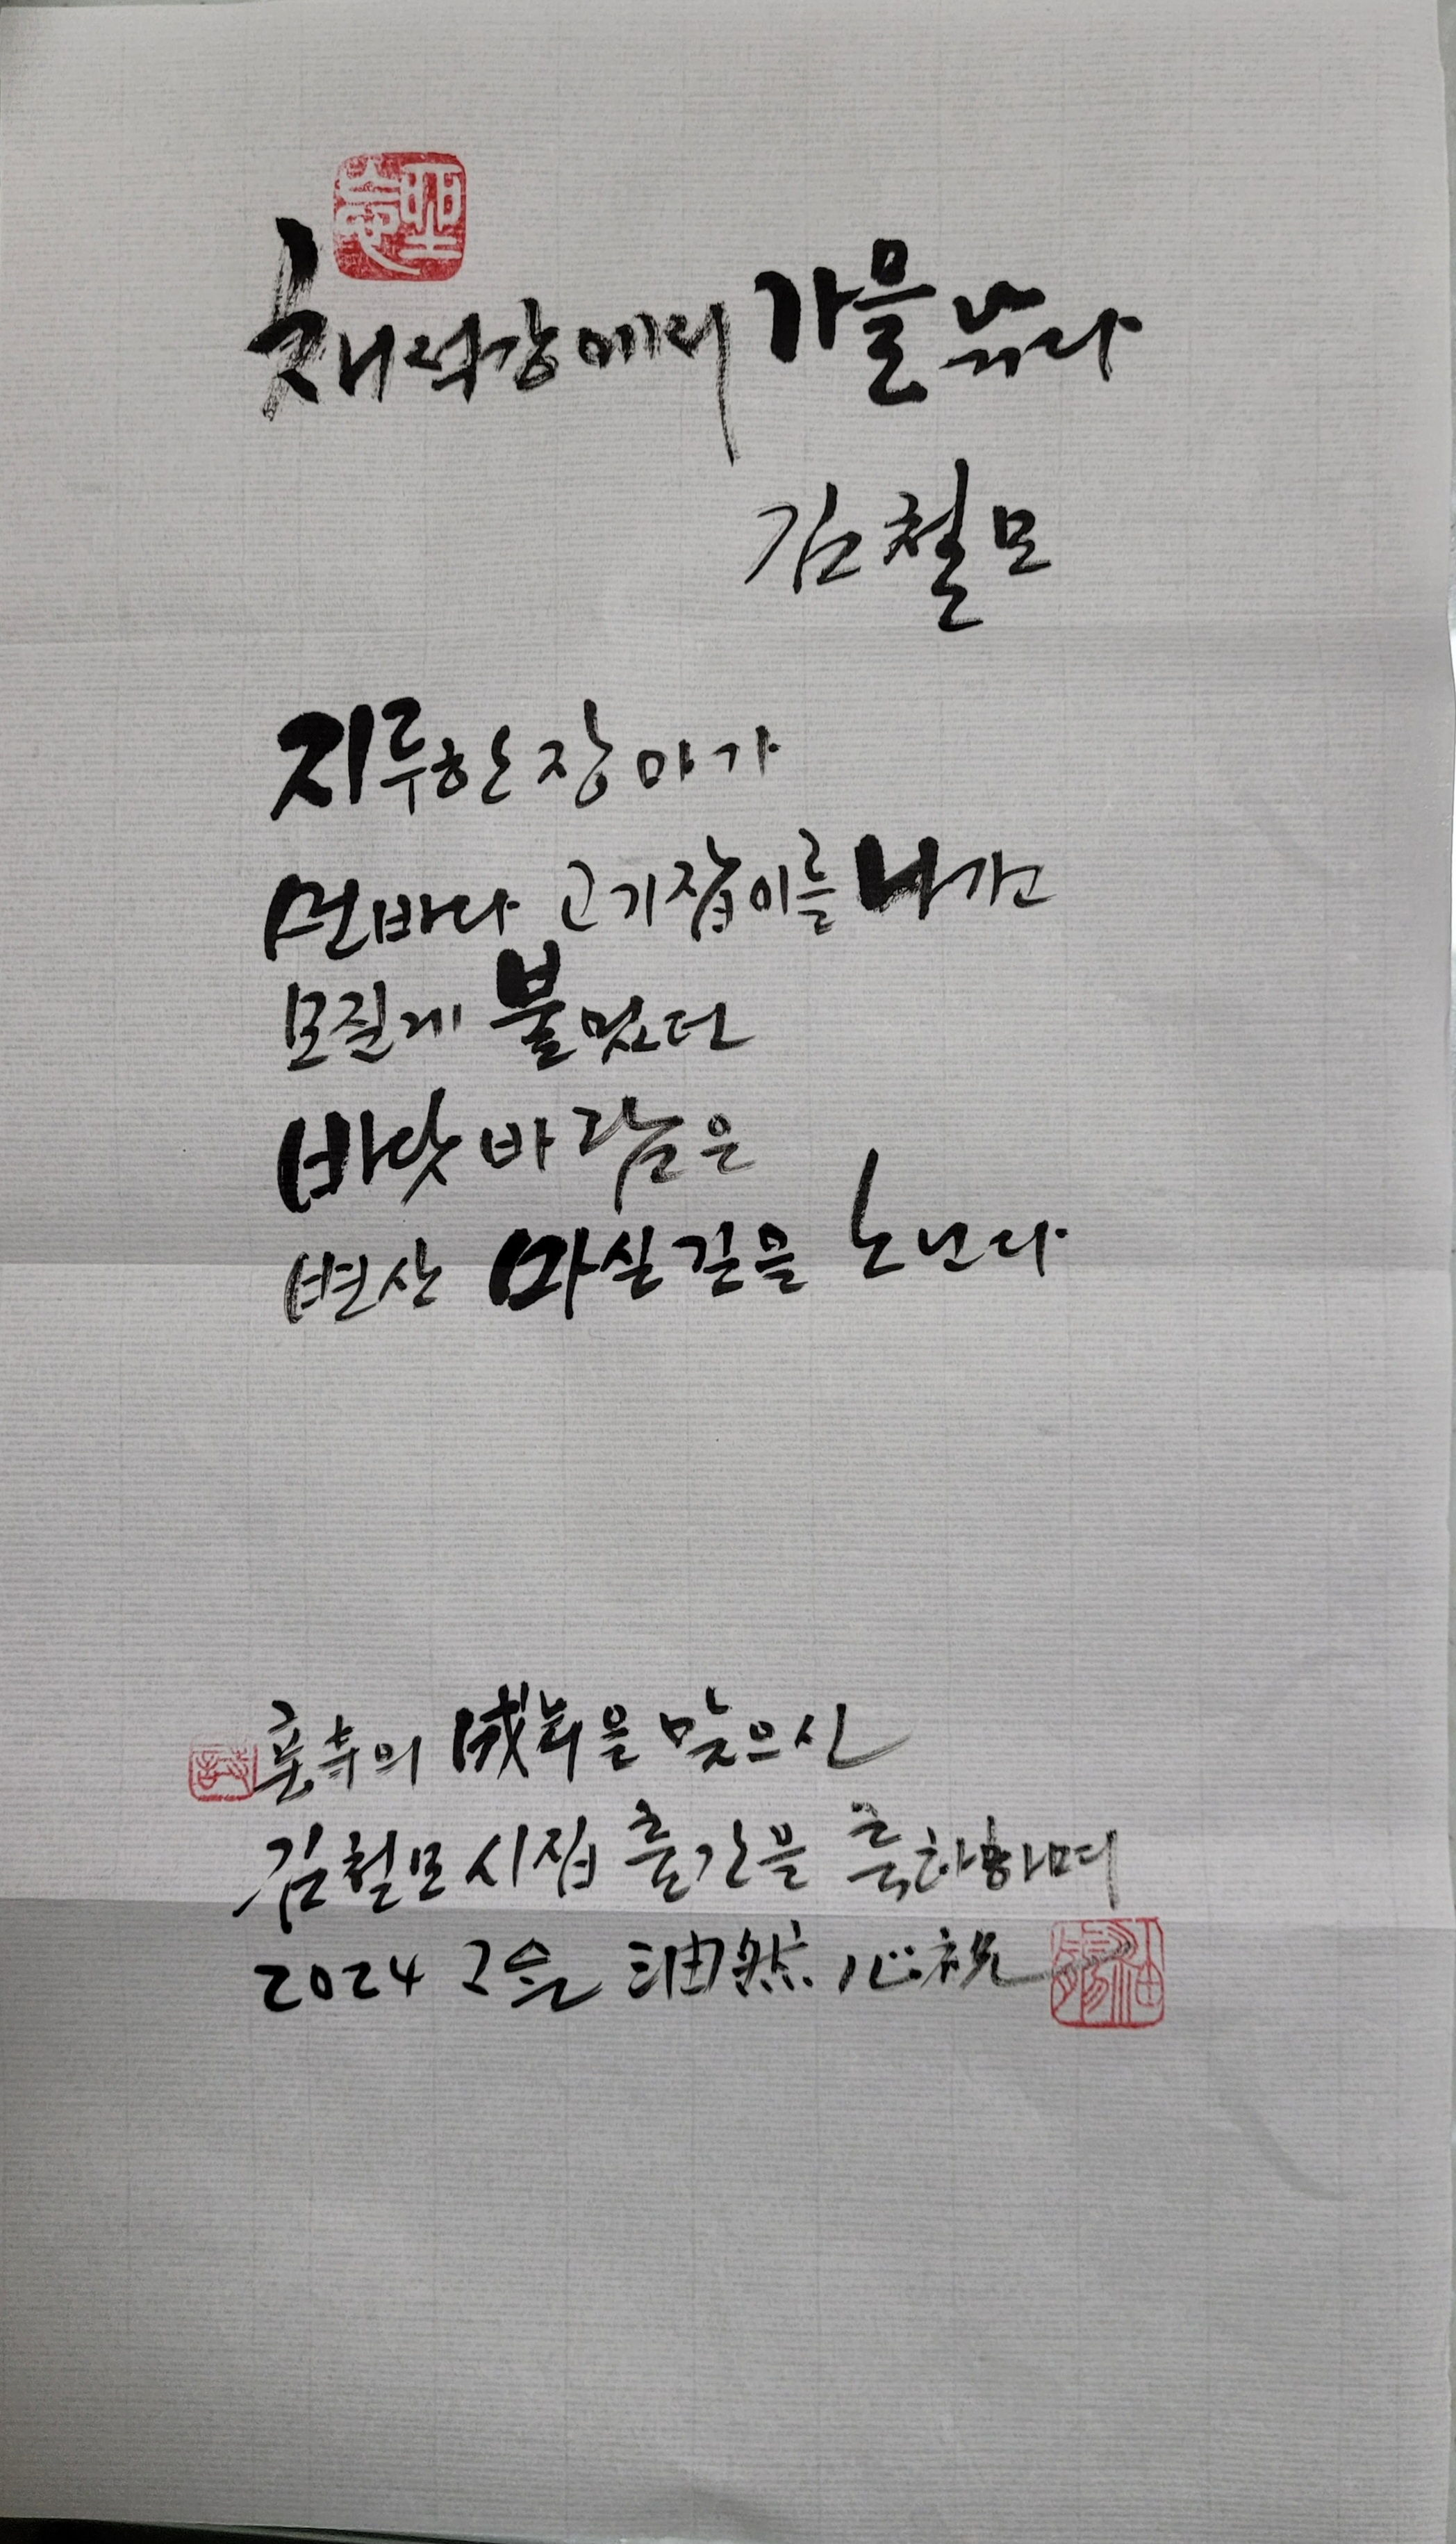 채석강에서 가을 낚다
김철모
지루한 장마가
먼바다 고기잡이를 나가고
모질게 불었던
바닷바람은
변산 마실길을 노닌다
의 成年을 맞으신
김철모 시집 출간을 축하하며
2024 가을 然 心祝